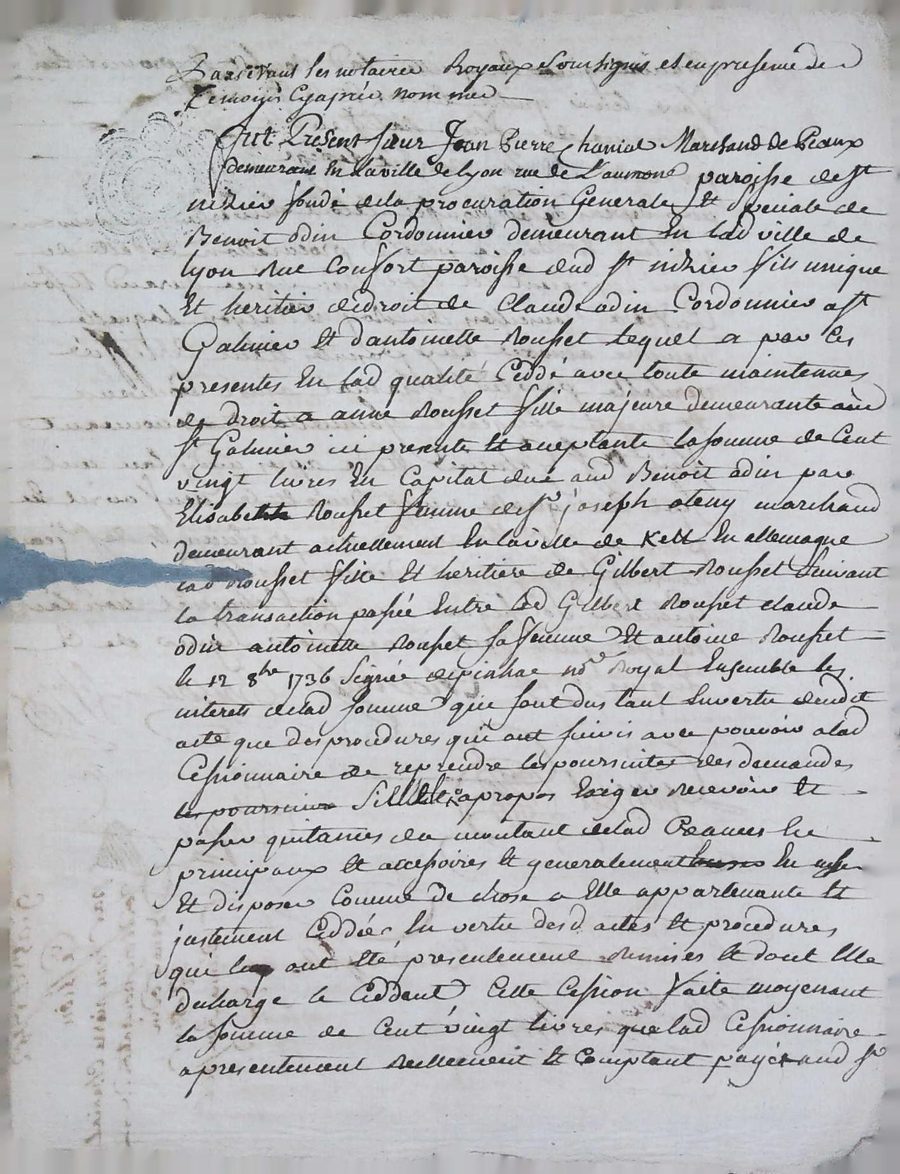 Pardevant les notaires Royaux Soussignés et en presence de
Temoins Cyaprès nommés
Fut Present Sieur Jean Pierre Chanial Marchand de Peaux
demeurant En la ville de lyon rue de L'aumone paroisse de st
nizier fondé de la procuration Generale Et Speciale de
Benoit odin Cordonnier demeurant En lad ville de
lyon Rue Confort paroisse dud st nizier fils unique
Et heritier de droit de Claude odin Cordonnier a st
Galmier Et d'antoinette Rousset Lequel a par Ces
presentes En lad qualité Ceddé avec toute maintenues
de droit a anne Rousset fille majeure demeurante aud
st Galmier ici presente Et aceptante la somme de Cent
vingt livres En Capital due aud Benoit odin par
Elisabeth Rousset femme de sr joseph oleny marchand
demeurant actuellement En la ville de Kell En allemagne
lad Rousset fille Et heritiere de Gilbert Rousset Suivant
la transaction passée Entre led Gilbert Rousset claude
odin antoinette Rousset sa femme Et antoine Rousset
le 12 8bre 1736 Signée depinhac nore Royal Ensemble les
interets de lad somme qui sont dus tant En vertu dudit
acte que des procedures qui ont suivis avec pouvoir a lad
Cessionnaire de reprendre les poursuites des demandes
les poursuivre Si apropos Exiger Recevoir Et
passer quitances du montant de lad Creances En
principaux Et accessoires Et generalement En user
Et disposer Comme de chose a Elle appartenante Et
justement Ceddée En vertu des d. actes Et procedures
qui luy ont Eté presentement Remises Et dont Elle
decharge le Ceddent Cette Cession faite moyenant
la somme de Cent vingt livres que lad Cessionnaire
a presentement Reellement Et Comptant payé aud sr